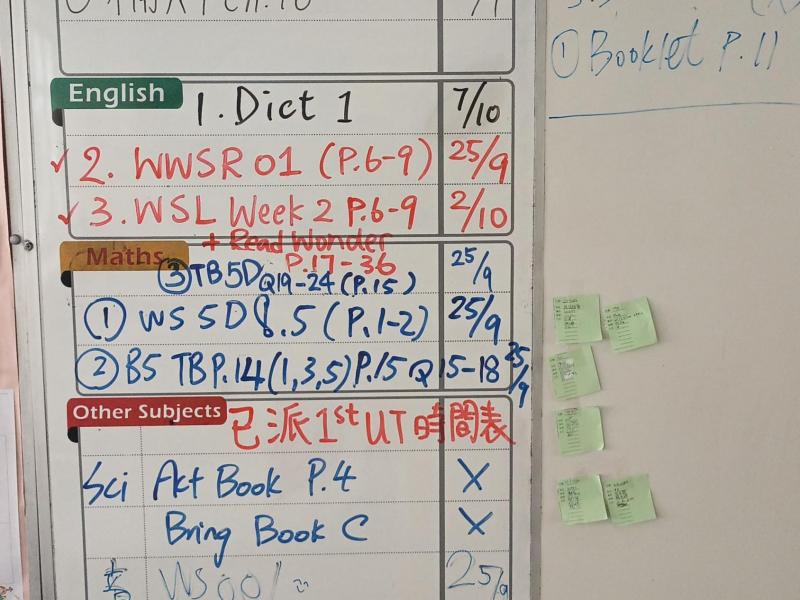 ① Booklet P.11
English
1. Dict 1 7/10
✓ 2. WWSR 01 (P.6-9) 25/9
✓ 3. WSL Week 2 P.6-9 2/10
+ Read Wonder
P.17-36
Maths
③ TB5D Q19-24 (P.15) 25/9
① WS 5D 8.5 (P.1-2) 25/9
② B5 TB P.14 (1,3,5) P.15 Q15-18 25/9
Other Subjects
已派 1st UT 時間表
Sci Act Book P.4 X
Bring Book C X
WS 25/9